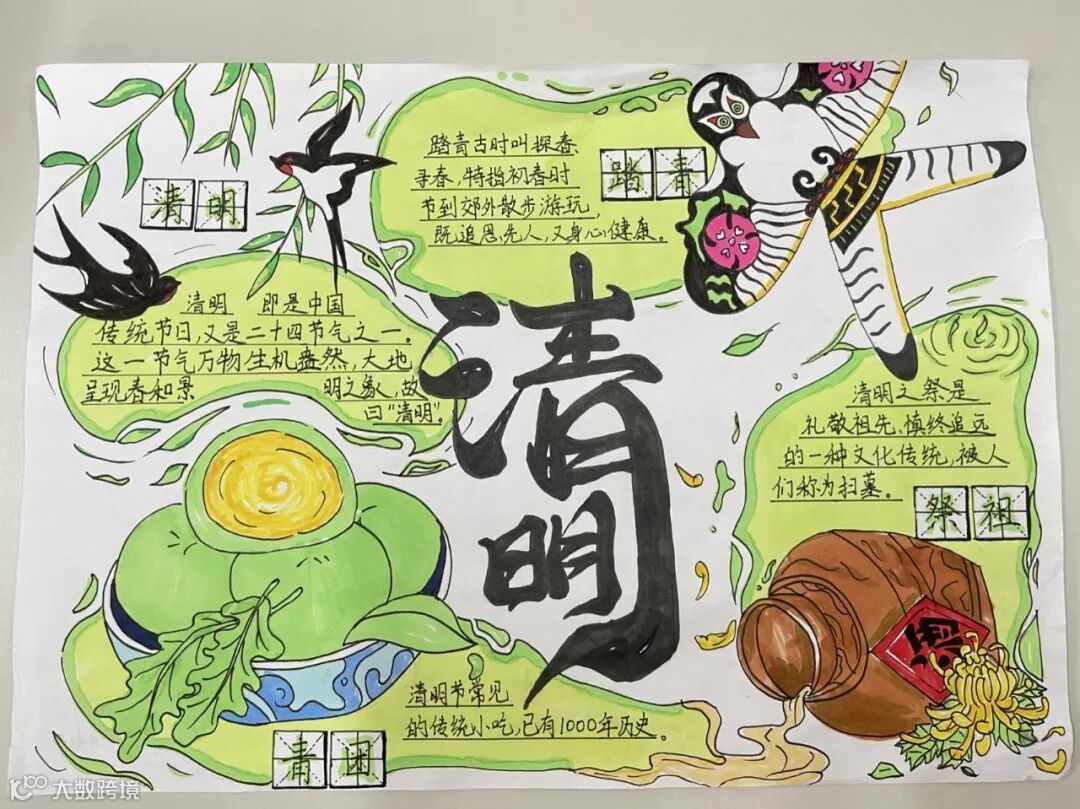 清明
清明 即是中国
传统节日,又是二十四节气之一。
这一节气万物生机盎然,大地
呈现春和景 明之象,故
曰“清明”。
踏青古时叫探春、
寻春,特指初春时
节到郊外散步游玩,
既追思先人,又身心健康。
踏青
清
明
清明之祭是
礼敬祖先,慎终追远
的一种文化传统,被人
们称为扫墓。
祭祖
酒
清明节常见
的传统小吃,已有1000年历史。
青团
大数跨境